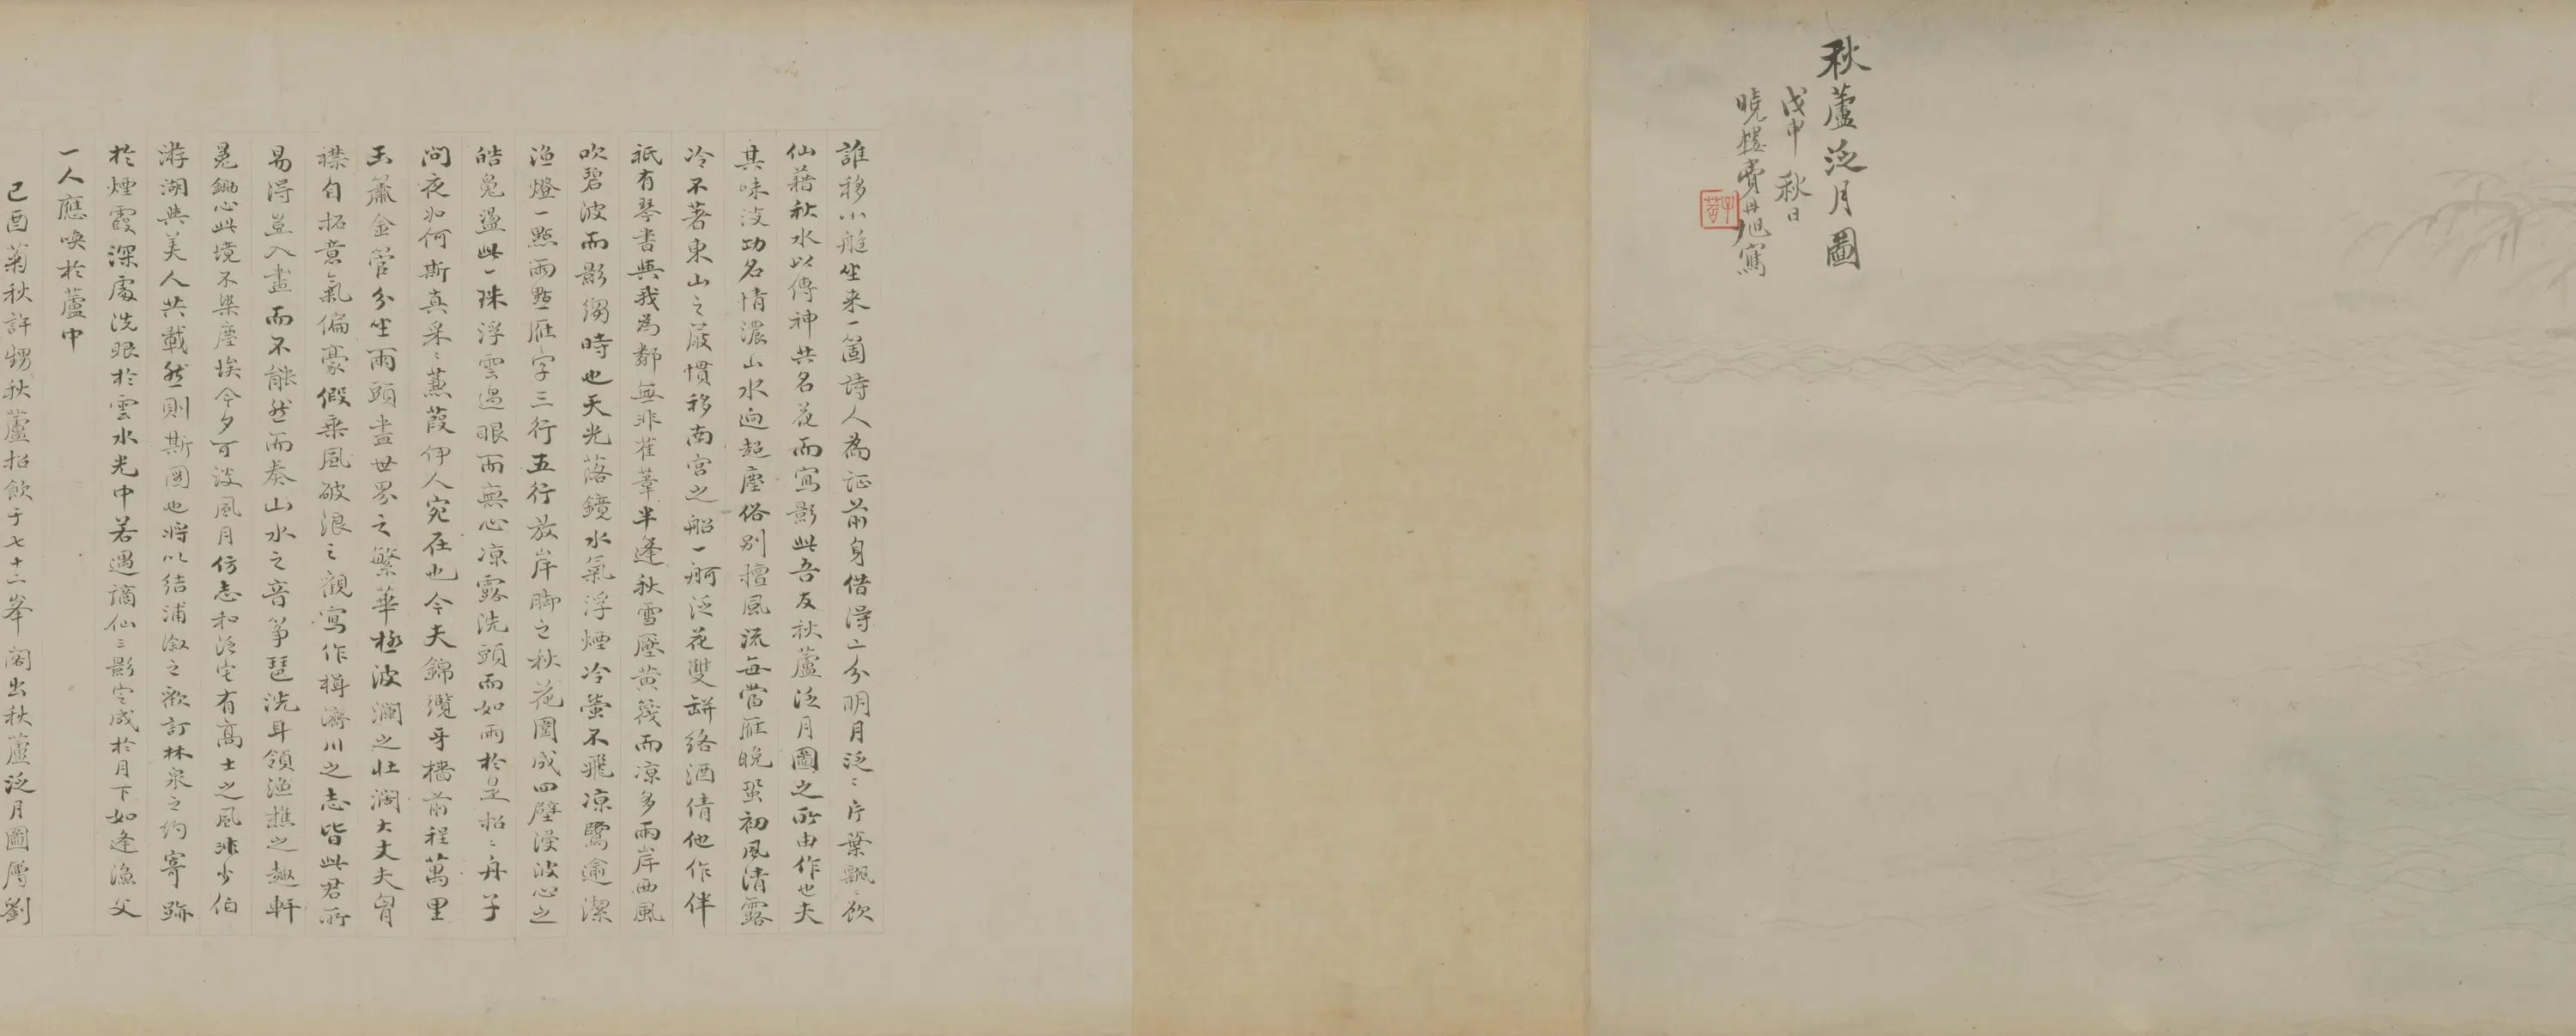 秋蘆泛月圖
戊申秋日
曉樓費丹旭寫
子苕
誰移小艇坐来一箇詩人為証前身借得二分明月泛〻片葉飄〻欲
仙藉秋水以傳神共名花而寫影此吾友秋蘆泛月圖之所由作也夫
其味淡功名情濃山水逈超塵俗别擅風流每當雁晚蛩初風清露
冷不著東山之屐慣移南宫之船一舸泛花雙缾絡酒倩他作伴
祇有琴書與我為鄰無非萑葦半篷秋雪壓黄篾而凉多兩岸西風
吹碧波而影縐時也天光落鏡水氣浮煙冷螢不飛凉鷺逾潔
漁燈一點兩點雁字三行五行放岸脚之秋花圍成四壁漫波心之
皓魄盪此一珠浮雲過眼而無心凉露洗頭而如雨於是招〻舟子
問夜如何斯真采〻蒹葭伊人宛在也今夫錦纜牙檣前程萬里
玉簫金管分坐兩頭盡世界之繁華極波瀾之壯濶大丈夫胷
襟自拓意氣偏豪假乘風破浪之觀寫作楫濟川之志皆此君所
易得豈入畫而不能然而奏山水之音箏琶洗耳領漁樵之趣軒
冕鋤心此境不染塵埃今夕可談風月仿志和泛宅有高士之風非少伯
游湖與美人共載然則斯圖也将以結浦溆之歡訂林泉之約寄跡
於煙霞深處洗眼於雲水光中若遇謫仙三影定成於月下如逢漁父
一人應喚於蘆中
己酉菊秋許甥秋蘆招飲于七十二峯閣出秋蘆泛月圖属劉